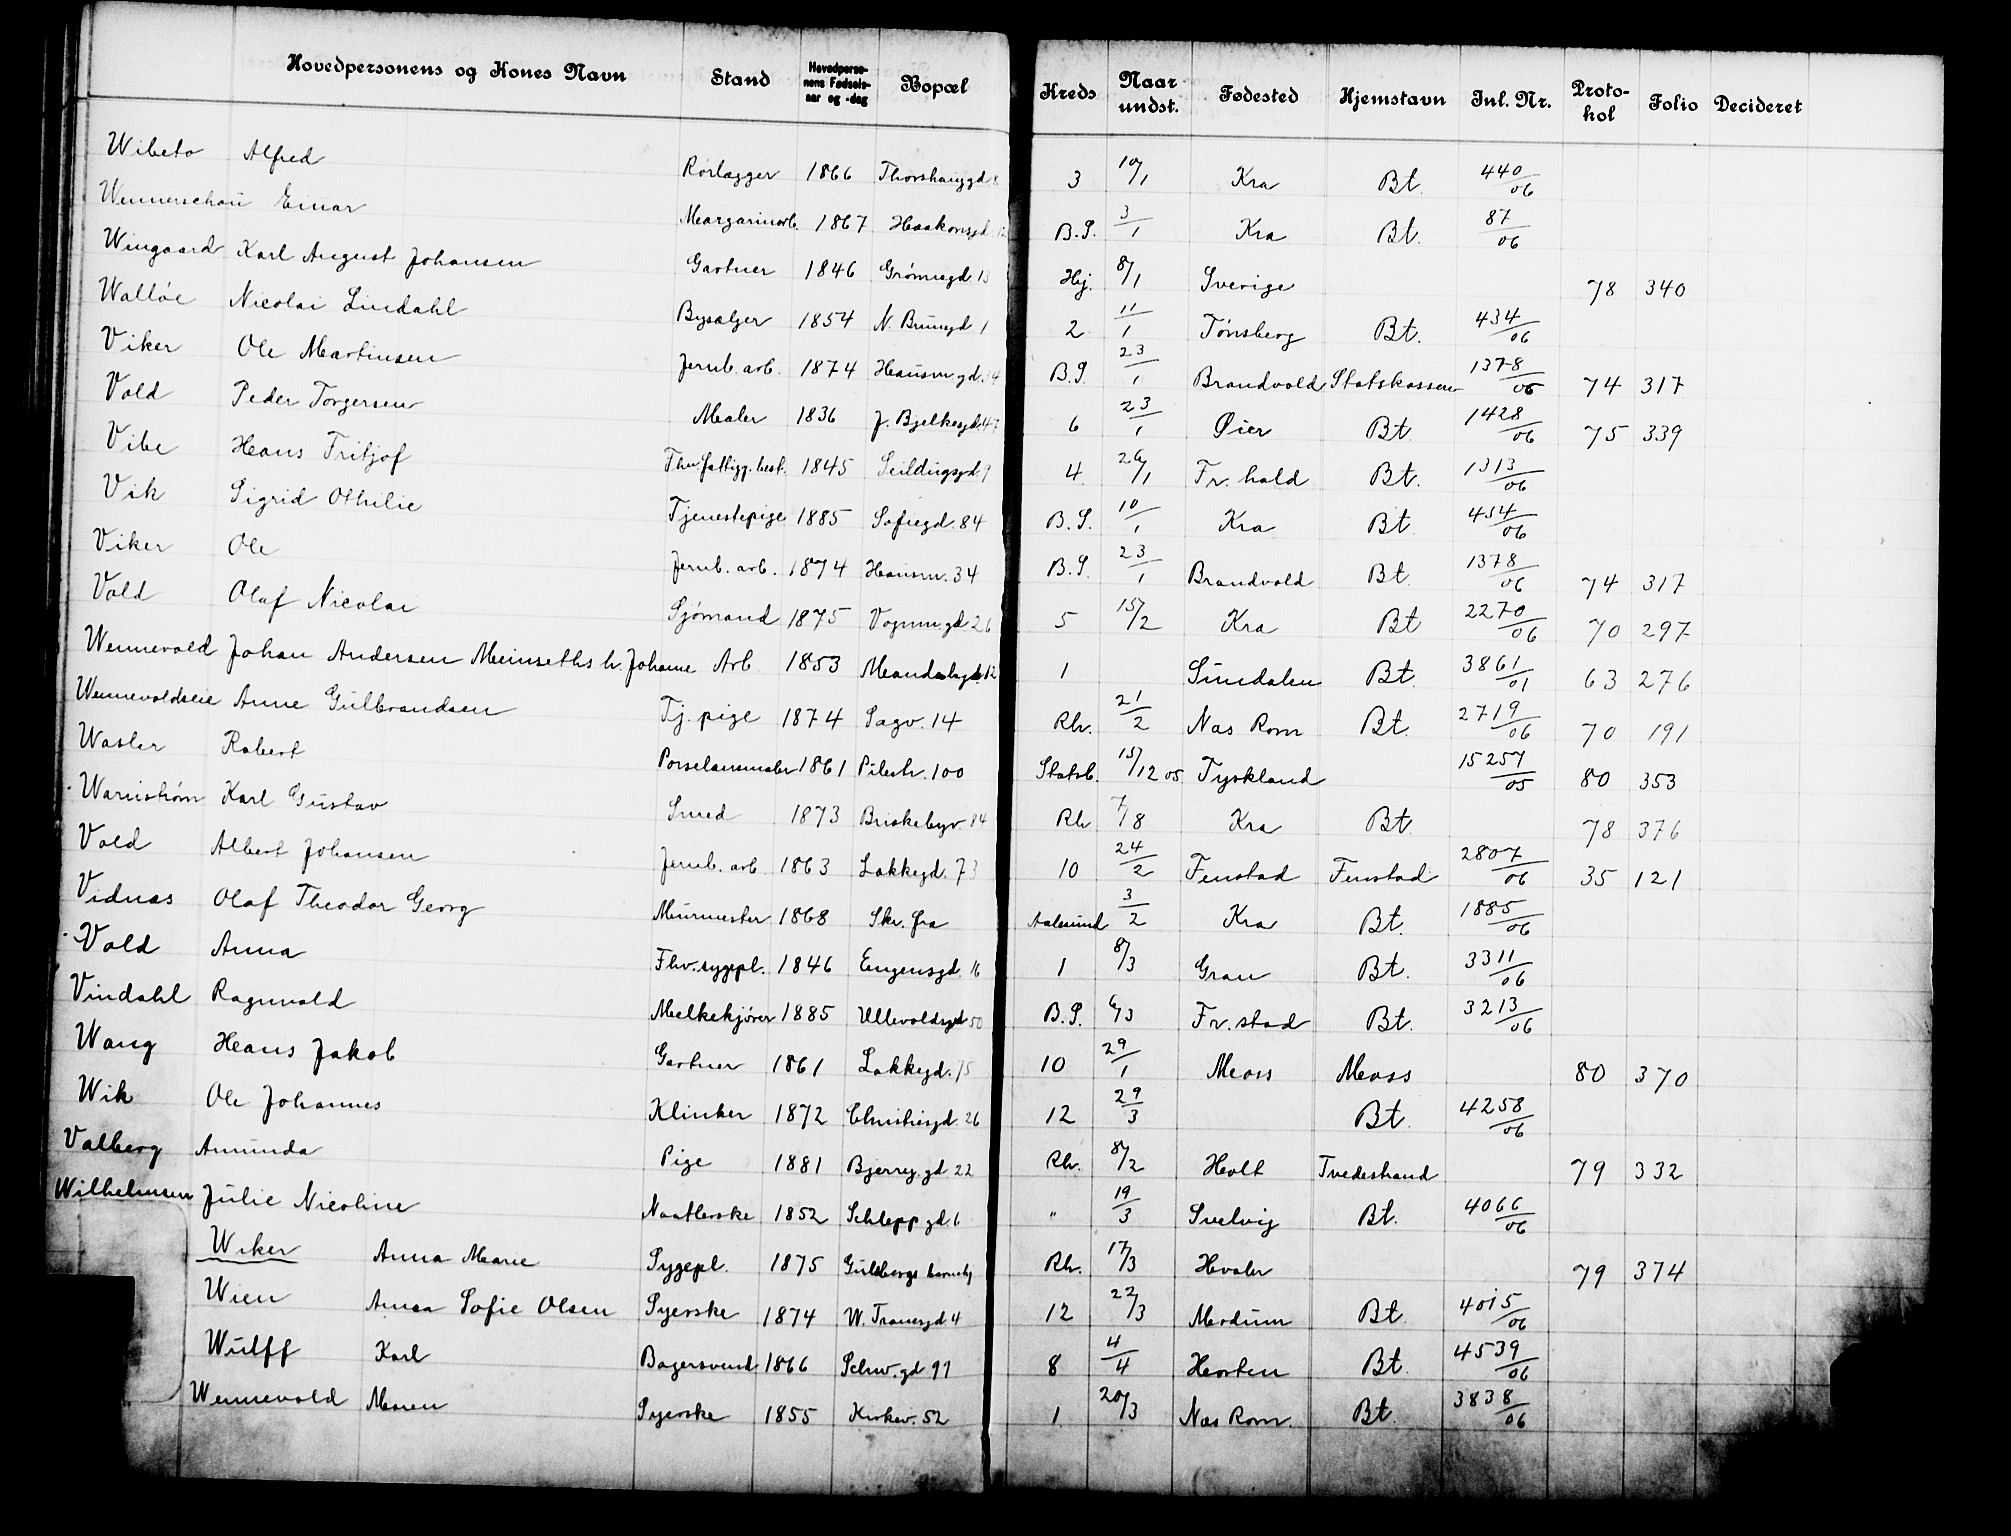 Hovedpersonens og Kones Navn Stand Hovedpersonens Fødselsaar og -dag Bopæl Kreds Naar undst. Fødested Hjemstavn Inl. Nr. Protokol Folio Decideret
Wibeto Alfred Rørlægger 1866 Thorshauggd 8 3 10/1 Kra Bt. 440/06
Wennerschou Einar Margarinarb. 1867 Haakonsgd B.S. 3/1 Kra Bt. 87/06
Wingaard Karl August Johansen Gartner 1846 Grønnegd 13 Hj. 8/1 Sverige 78 340
Walløe Nicolai Lindahl Bysælger 1854 N. Brunngd 1 2 11/1 Tønsberg Bt. 434/06
Viker Ole Martinsen Jernb. arb. 1874 Hausm gd. 34 B.S. 23/1 Brandvold Statskassen 1378/06 74 317
Vold Peder Torgersen Maler 1836 J. Bjelkesgd. 47 6 23/1 Øier Bt. 1428/06 75 339
Vibe Hans Fritjof Fhv. fattigg. best. 1845 Seildugsgd 9 4 26/1 Fr. hald Bt. 1313/06
Vik Sigrid Othilie Tjenestepige 1885 Sofiegd. 84 B.S. 10/1 Kra Bt 454/06
Viker Ole Jernb. arb. 1874 Hausm. 34 B.S. 23/1 Brandvold Bt. 1378/06 74 317
Vold Olaf Nicolai Sjømand 1875 Vognm. gd 26 5 15/2 Kra Bt 2270/06 70 297
Wennevold Johan Andersen Meinseths h. Johanne Arb. 1853 12 1 Sundalen Bt. 3861/01 63 276
Wennevoldseie Anne Gulbrandsen Tj. pige 1874 Sagv. 14 Rh. 21/2 Nas Rom Bt. 2719/06 70 191
Wasler Robert Porselænsmaler 1861 Pilestr. 100 Statsb. 15/12 05 Tyskland 15257/05 80 353
Warnstrøm Karl Gustav Smed 1873 Briskebyv 84 Rh 7/8 Kra Bt 78 376
Vold Albert Johansen Jernb. arb 1863 Lakkegd. 73 10 24/2 Fenstad Fenstad 2807/06 35 121
Vidnes Olaf Theodor Georg Murmester 1868 Skr. fra Aalesund 3/2 Kra Bt. 1885/06
Vold Anna Fhv. sygepl. 1846 Eugensgd. 16 1 8/3 Gran Bt. 3311/06
Vindahl Ragnvald Melkekjører 1885 Ullevoldsgd 50 B.S. 6/3 Fr. stad Bt. 3213/06
Wang Hans Jakob Gartner 1861 Lakkegd. 75 10 29/1 Moss Moss 80 370
Wik Ole Johannes Klinker 1872 Christiesgd. 26 12 29/3 Bt. 4258/06
Valberg Amunda Pige 1881 Bjerreg. gd 22 Rh. 8/2 Holt Tvedestrand 79 332
Wilhelmsen Julie Nicoline Naatlerske 1852 Schlepp. gd. 6 " 19/3 Svelvig Bt. 4066/06
Wiker Anna Marie Sygepl. 1875 Guldbergs Rh. 17/3 Hvaler 79 374
Wien Anna Sofie Olsen Syerske 1874 W. Tranesgd 4 12 22/3 Modum Bt 4015/06
Wulff Karl Bagersvend 1866 Schw. gd 91 8 4/4 Horten Bt. 4539/06
Wennevold Maren Syerske 1855 Kirkev. 52 1. 20/3 Nas Rom. Bt. 3838/06